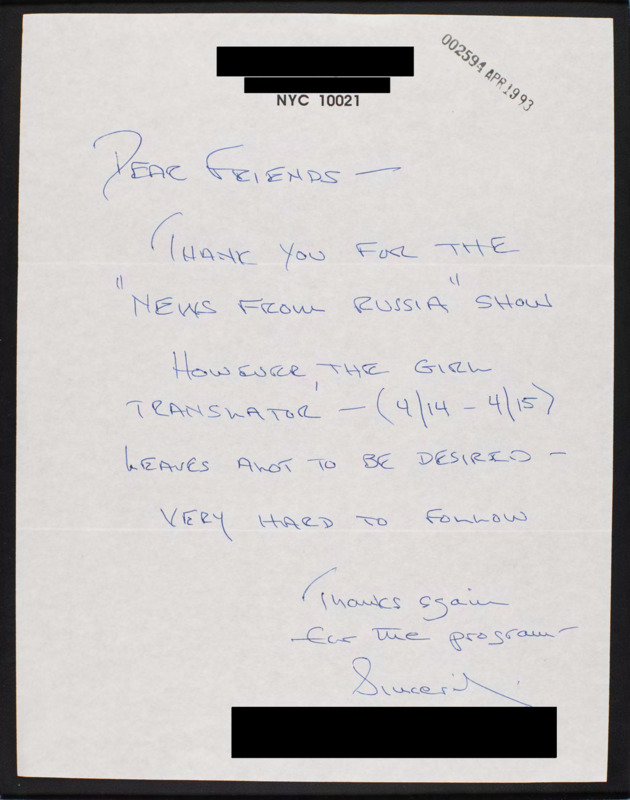 002594 APR 1993
NYC 10021
DEAR FRIENDS —
THANK YOU FOR THE
"NEWS FROM RUSSIA" SHOW
HOWEVER, THE GIRL
TRANSLATOR — (4/14 - 4/15)
LEAVES ALOT TO BE DESIRED -
VERY HARD TO FOLLOW
Thanks again
for the program -
Sincerely